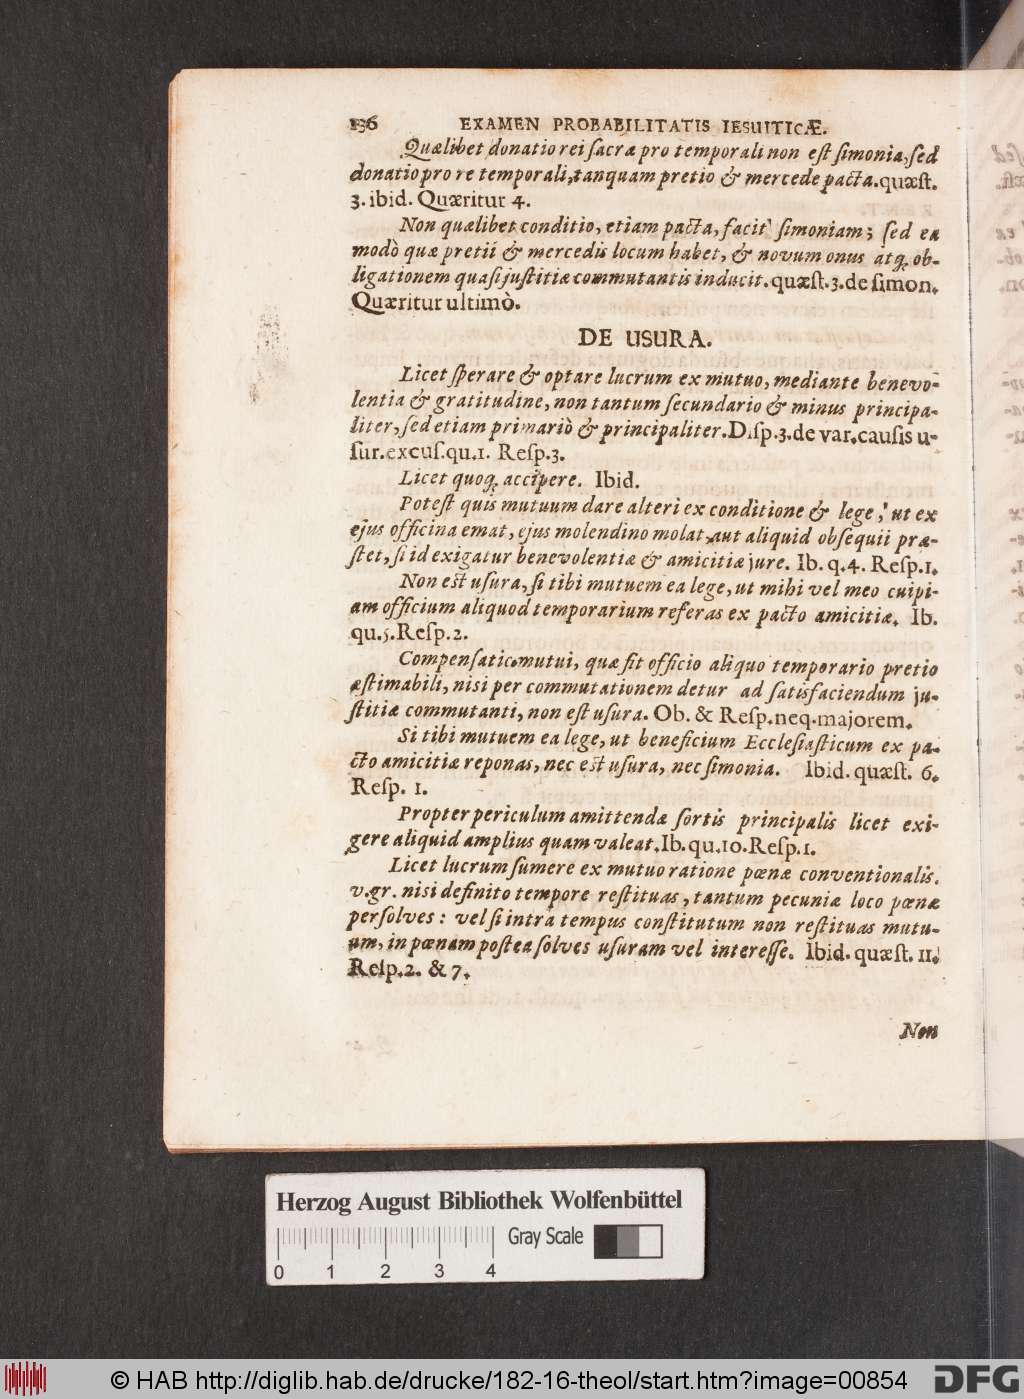 136 EXAMEN PROBABILITATIS IESUITICÆ.
Quælibet donatio rei sacræ pro temporali non est simonia, sed
donatio pro re temporali, tanquam pretio & mercede pacta. quæst.
3. ibid. Quæritur 4.
Non quælibet conditio, etiam pacta, facit simoniam; sed ea
modò quæ pretii & mercedis locum habet, & novum onus atq; ob-
ligationem quasi justitiæ commutantis inducit. quæst. 3. de simon.
Quæritur ultimò.
DE USURA.
Licet sperare & optare lucrum ex mutuo, mediante benevo-
lentia & gratitudine, non tantum secundario & minus principa-
liter, sed etiam primariò & principaliter. Disp. 3. de var. causis u-
sur. excus. qu. 1. Resp. 3.
Licet quoq; accipere. Ibid.
Potest quis mutuum dare alteri ex conditione & lege, ut ex
ejus officina emat, ejus molendino molat, aut aliquid obsequii præ-
stet, si id exigatur benevolentiæ & amicitiæ jure. Ib. q. 4. Resp. 1.
Non est usura, si tibi mutuem ea lege, ut mihi vel meo cuipi-
am officium aliquod temporarium referas ex pacto amicitiæ. Ib.
qu. 5. Resp. 2.
Compensatio mutui, quæ fit officio aliquo temporario pretio
æstimabili, nisi per commutationem detur ad satisfaciendum ju-
stitiæ commutanti, non est usura. Ob. & Resp. neq. majorem.
Si tibi mutuem ea lege, ut beneficium Ecclesiasticum ex pa-
cto amicitiæ reponas, nec est usura, nec simonia. Ibid. quæst. 6.
Resp. 1.
Propter periculum amittendæ sortis principalis licet exi-
gere aliquid amplius quam valeat. Ib. qu. 10. Resp. 1.
Licet lucrum sumere ex mutuo ratione pœnæ conventionalis.
v. gr. nisi definito tempore restituas, tantum pecuniæ loco pœnæ
persolves: vel si intra tempus constitutum non restituas mutu-
um, in pœnam postea solves usuram vel interesse. Ibid. quæst. 11.
Resp. 2. & 7.
Non
Herzog August Bibliothek Wolfenbüttel
Gray Scale
0 1 2 3 4
© HAB http://diglib.hab.de/drucke/182-16-theol/start.htm?image=00854
DFG